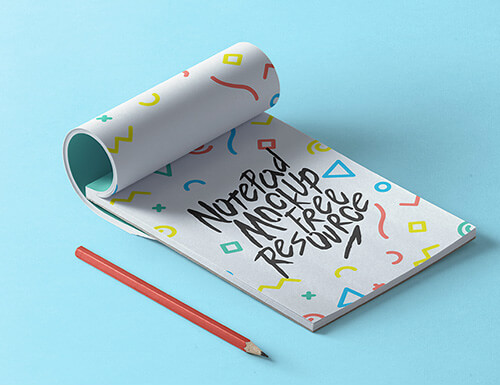 NotePad
MockUp
Free
Resource